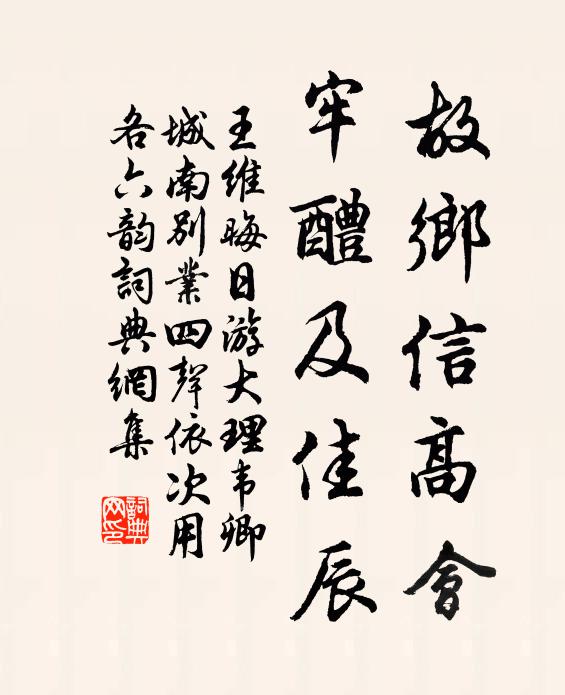 故鄉信高會
牢醴及佳辰
王維晦日游大理韦卿
城南別業四聲依次用
各六韵詞典網集
詞典网印